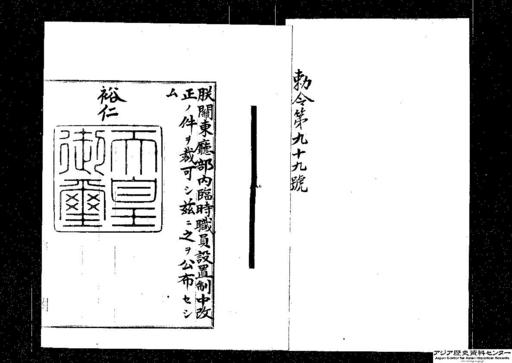 勅令第九十九號
朕關東廳部內臨時職員設置制中改
正ノ件ヲ裁可シ茲ニ之ヲ公布セシ
ム
裕仁
天皇
御璽
アジア歴史資料センター
Japan Center for Asian Historical Records